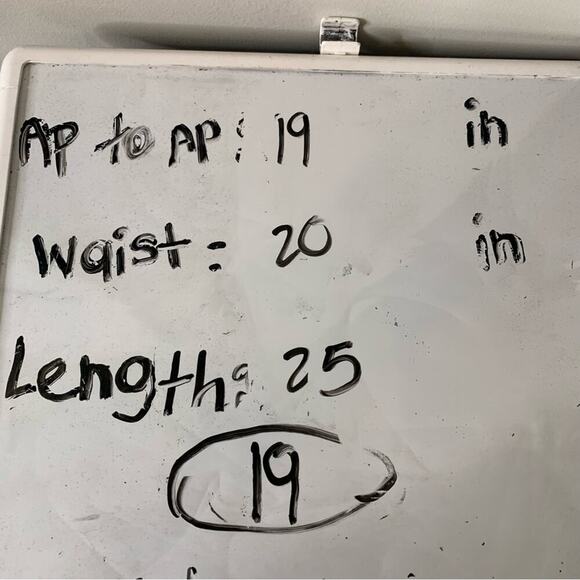 AP to AP: 19 in
Waist: 20 in
Length: 25
19